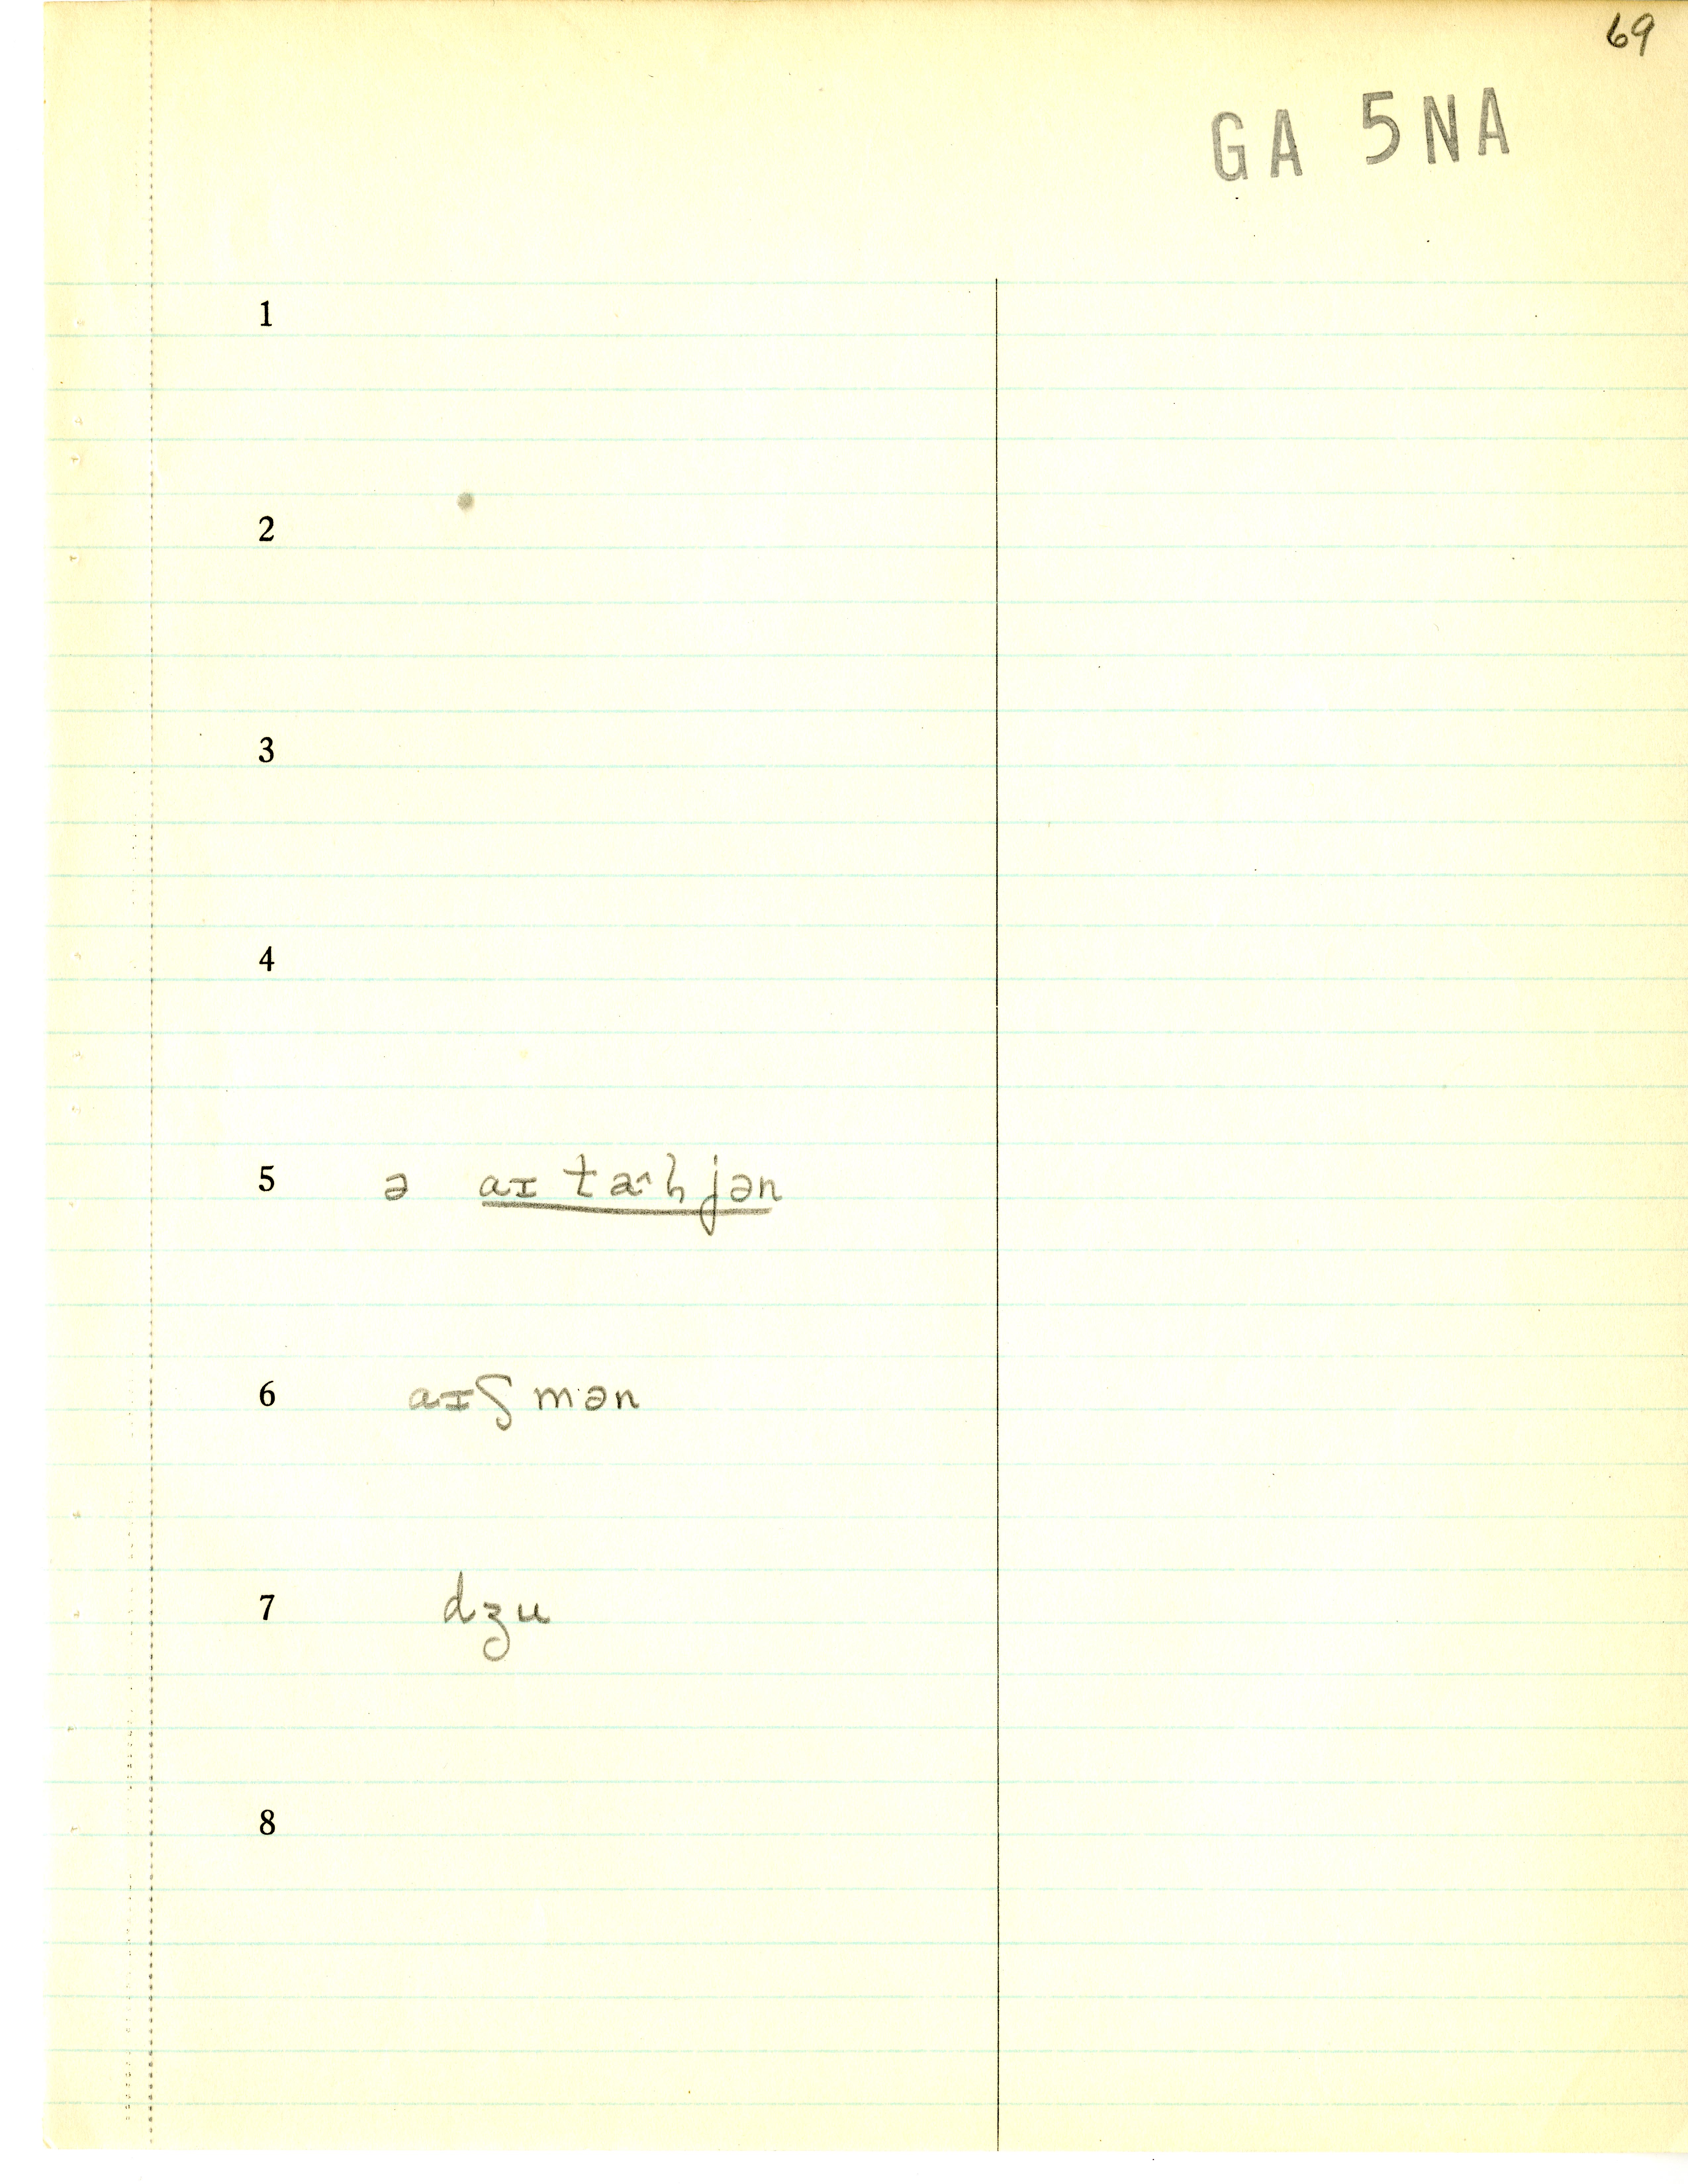 69
GA 5NA
1
2
3
4
5 ə aɪ tæ^ljən
6 aɪʃ mən
7 dʒu
8